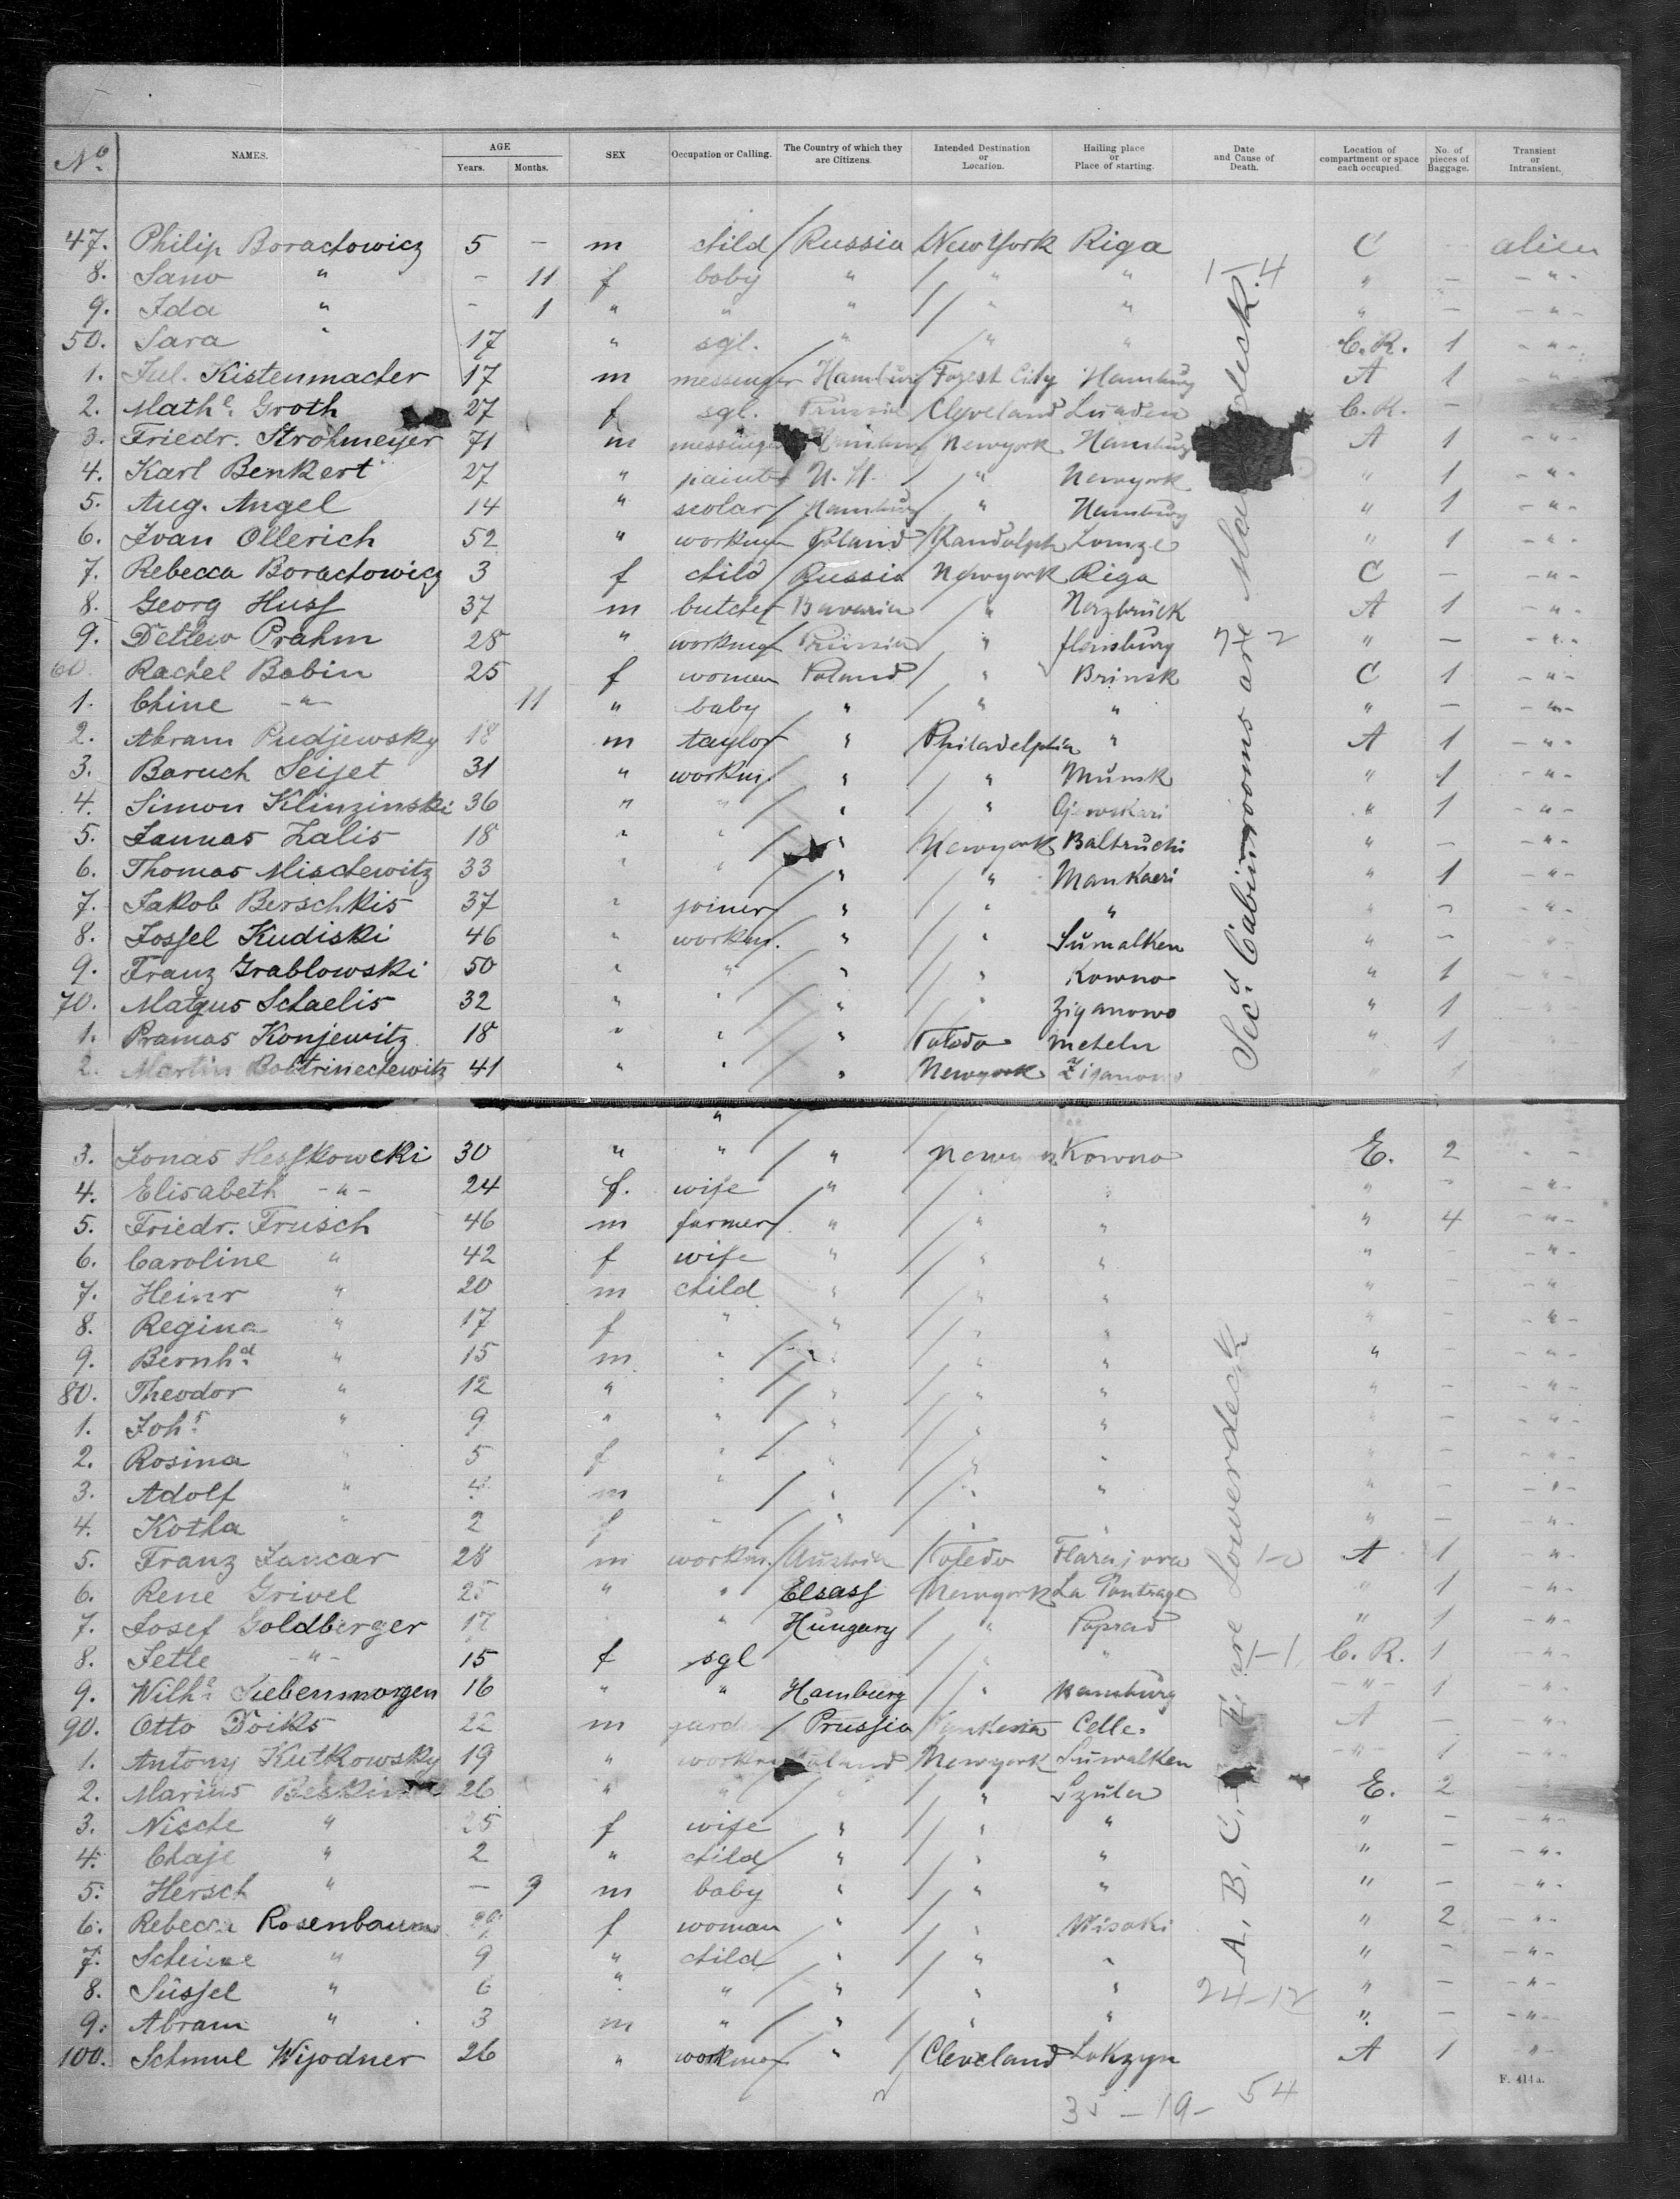 No. NAMES. AGE Years. Months. SEX Occupation or Calling. The Country of which they are Citizens. Intended Destination or Location. Hailing place or Place of starting. Date and Cause of Death. Location of compartment or space each occupied. No. of pieces of Baggage. Transient or Intransient.
47. Philip Borachowicz 5 – m child Russia New York Riga C alien
8. Sano " – 11 f baby " " " " — - " -
9. Ida " – 1 " " " " " " — - " -
50. Sara " 17 " sgl. " " " C.R. 1 - " -
1. Jul. Kistenmacher 17 m messenger Hamburg Forest City Hamburg A 1 - " -
2. Mathe. Groth 27 f sgl. Prussia Cleveland Lunden C.R. — - " -
3. Friedr. Strohmeyer 71 m messenger Hamburg Newyork Hamburg A 1 - " -
4. Karl Benkert 27 " painter " Newyork " 1 - " -
5. Aug. Angel 14 " scolar Hamburg " Hamburg " 1 - " -
6. Ivan Ollerich 52 " workman Poland Randolph Lomze " 1 - " -
7. Rebecca Borachowicz 3 f child Russia Newyork Riga C — - " -
8. Georg Huss 37 m butcher Bavaria " Herzbruck A 1 - " -
9. Detlew Prahm 28 " workmg Prussia " flensburg " — - " -
60. Rachel Babin 25 f women Poland " Brinsk C 1 - " -
1. Chine - " - 11 " baby " " " " — - " -
2. Abram Pudjewsky 18 m taylor " Philadelphia " A 1 - " -
3. Baruch Seijet 31 " workmg. " " Munsk " 1 - " -
4. Simon Klinzinski 36 " " " " " 1 - " -
5. Jannas Zalis 18 " " " Newyork Baltruchi " — - " -
6. Thomas Mischewitz 33 " " " " Mankaeri " 1 - " -
7. Jakob Berschkis 37 " joiner " " " " — - " -
8. Jossel Kudiski 46 " workm. " " Sumalken " — - " -
9. Franz Grablowski 50 " " " " Kowno " 1 - " -
70. Matgus Schaelis 32 " " " " Ziganowo " 1
1. Pramas Konjewitz 18 " " " Toledo Mecheln " 1 - " -
2. Martin Boltrinechewitz 41 " " " Newyork Ziganowo " 1
Secd. Cabinrooms are
3. Jonas Hesskowcki 30 " " " Newyork Kowno E. 2
4. Elisabeth - " - 24 f. wife " " " " — - " -
5. Friedr. Frusch 46 m farmer " " " " 4 - " -
6. Caroline " 42 f wife " " " " - " -
7. Heinr " 20 m child " " " " - " -
8. Regina " 17 f " " " " " — - " -
9. Bernhd. " 15 m " " " " " — - " -
80. Theodor " 12 " " " " " " — - " -
1. Johs. " 9 " " " " " " — - " -
2. Rosina " 5 f " " " " " — - " -
3. Adolf " 4 m " " " " " — - " -
4. Kotha " 2 f " " " " " — - " -
5. Franz Jancar 28 m workm. Austria Toledo A 1 "
6. Rene Grivel 25 " " Elsass Newyork " 1 "
7. Josef Goldberger 17 " " Hungary " Poprad " 1 - " -
8. Jette - " - 15 f sgl " " C.R. 1 - " -
9. Wilhe. Siebenmorgen 16 " " Hamburg " Hamburg - " - 1 - " -
90. Otto Doiks 22 m Prussia Celle. A — - " -
1. Antony Kutkowsky 19 " workm Poland Newyork Suwalken - " - 1 - " -
2. Marius 26 " " " " Szula E. 2
3. Nische " 25 f wife " " " " — - " -
4. Chaje " 2 " child " " " " — - " -
5. Hersch " — 9 m baby " " " " — - " -
6. Rebecca Rosenbaum f woman " " Wisoki " 2 - " -
7. Scheine " 9 " child " " " " — - " -
8. Süssel " 6 " " " " " " — - " -
9. Abram " 3 m " " " " " — - " -
100. Schmul Wijodner 26 " workman " Cleveland Lokzyn A 1 "
A, B, C, E are Lowerdeck
1-4
1-0
1-1
24-12
54
F. 414a.